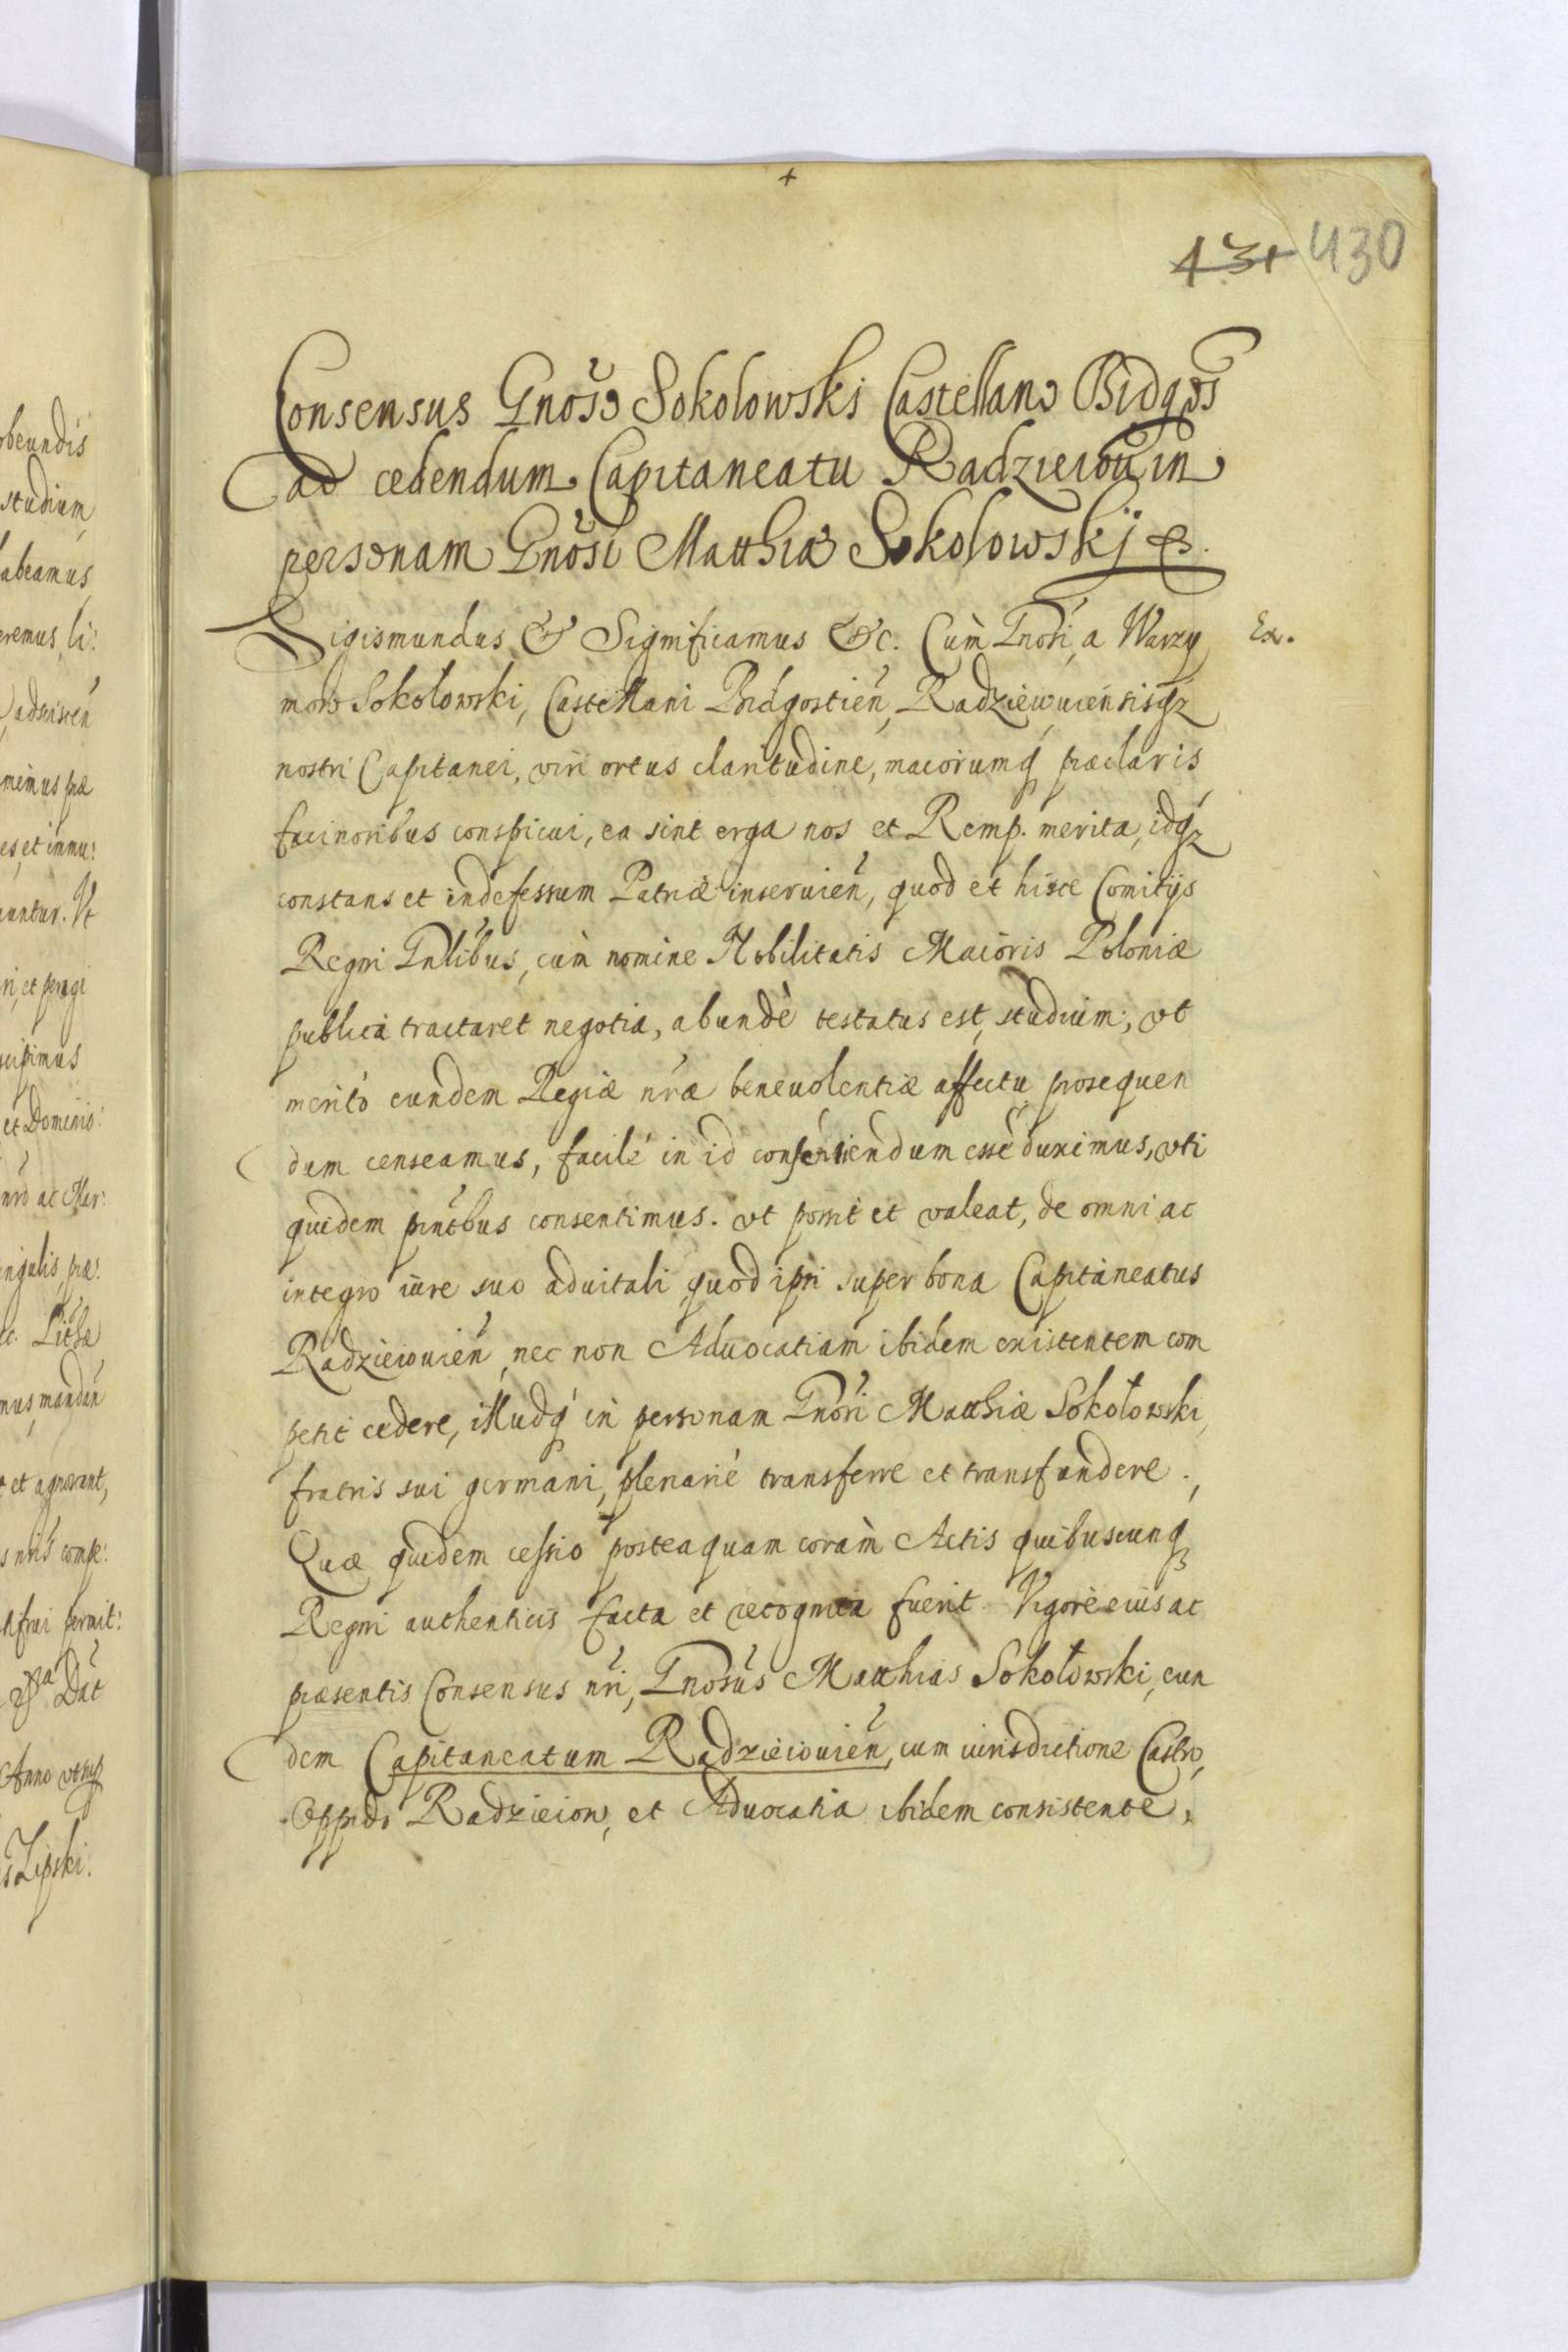 +
431 430
Consensus Gnoso Sokolowski Castellano Bidgos
ad cedendum Capitaneatu Radzieiou in
personam Gnosi Matthiæ Sokolowskij &.
Sigismundus & Significamus &c. Cùm Gnosi, a Warzy
mowo Sokołowski, Castellani Bidgostien, Radzieiouiensisqz
nostri Capitanei, viri ortus claritudine, maiorumq præclaris
facinoribus conspicui, ea sint erga nos et Remp. merita, idqz
constans et indefessum Patriæ inseruien, quod et hisce Comitijs
Regni Gnlibus, cùm nomine Nobilitatis Maioris Poloniæ
publica tractaret negotia, abundè testatus est, studium, vt
meritò eundem Regiæ nræ beneuolentiæ affectu prosequen
dum censeamus, facilè in id consentiendum esse duximus, vti
quidem pntibus consentimus. vt possit et valeat, de omni ac
integro iure suo aduitali quod ipsi super bona Capitaneatus
Radzieiouien, nec non Aduocatiam ibidem existentem com
petit cedere, illudq in personam Gnosi Matthiæ Sokołowski,
fratris sui germani, plenariè transferre et transfundere.
Quæ quidem cessio posteaquam coràm Actis quibuscunq
Regni authenticis facta et recognita fuerit. Vigore eius ac
præsentis Consensus nri, Gnosus Matthias Sokołowski, eun
dem Capitaneatum Radzieiouien, cum iurisdictione Castro,
Oppido Radzieiow, et Aduocatia ibidem consistente,
Ex.
obeundis
studium
abeamus
eremus, li:
adscisten
nimus præ
es, et immu:
untur. Vt
ri, et peragi
et Dominio:
nro ac Mar:
ingulis, præ:
c. Lithæ
mus, mandan
et agnorant,
s nris compe:
frui permit:
Dat
Anno vtsup
s Lipski.